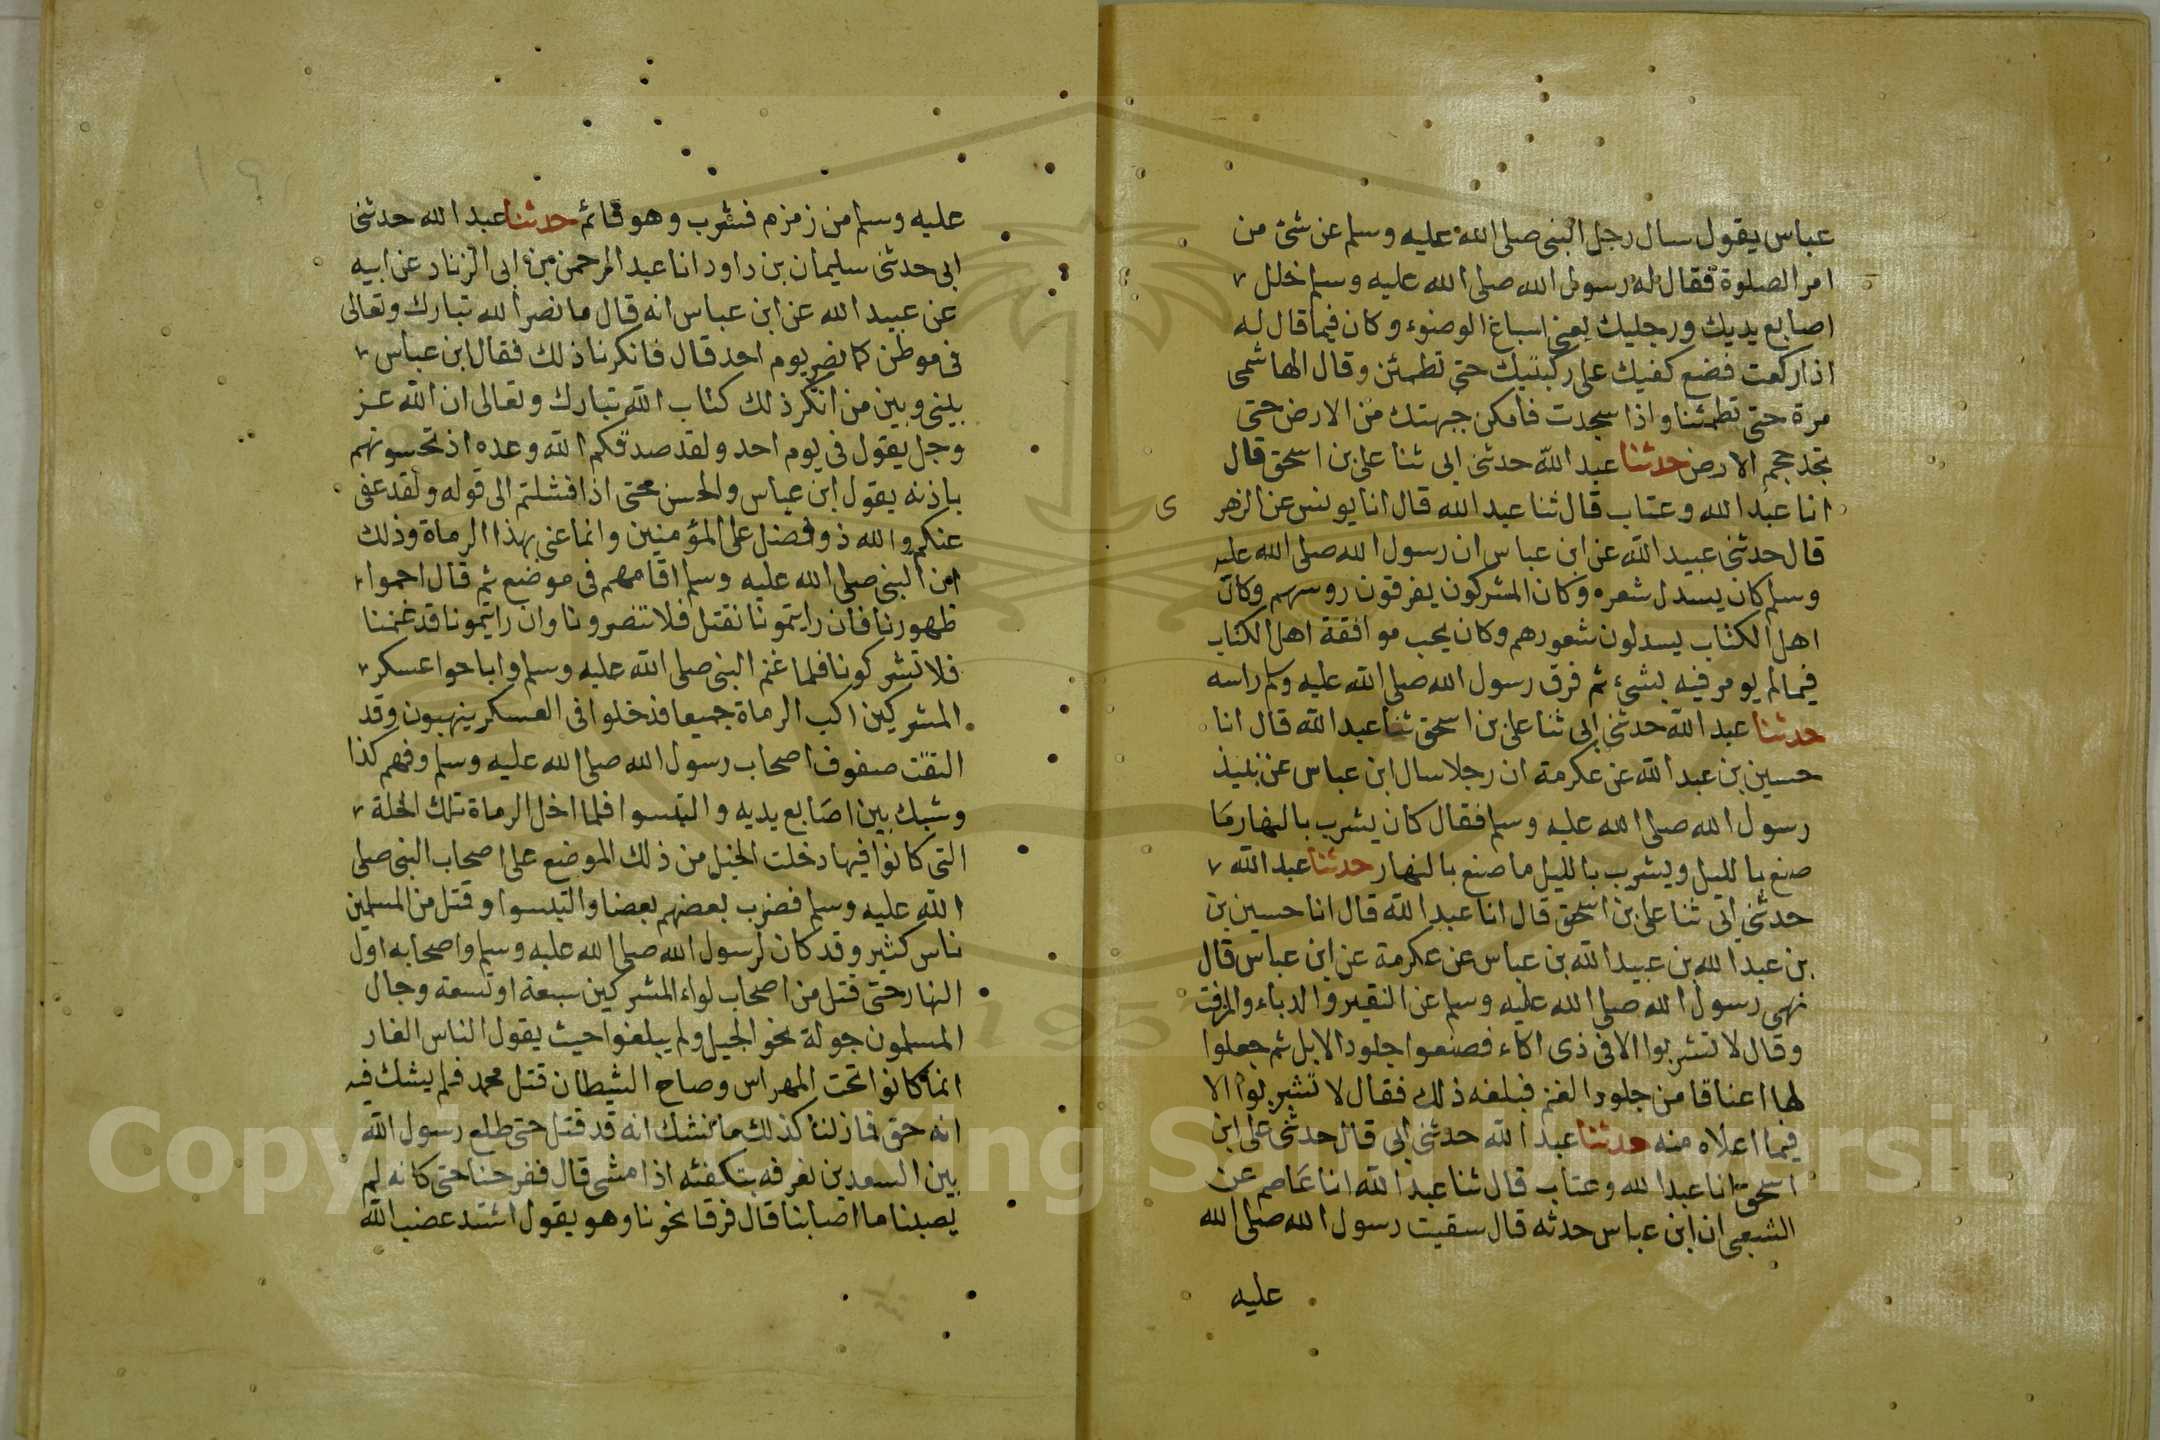 عباس يقول سال رجل النبى صلى الله عليه وسلم عن شئ من
امر الصلوة فقال له رسول الله صلى الله عليه وسلم خلل
اصابع يديك ورجليك يعنى اسباغ الوضوء وكان فيما قال له
اذا ركعت فضع كفيك على ركبتيك حتى تطمئن وقال الهاشمى
مرة حتى تطمئنا واذا سجدت فامكن جبهتك من الارض حتى
تجد حجم الارض حدثنا عبد الله حدثنى ابى ثنا على بن اسحق قال
انا عبد الله وعتاب قال ثنا عبد الله قال انا يونس عن الزهر ى
قال حدثنى عبيد الله عن ابن عباس ان رسول الله صلى الله عليه
وسلم كان يسدل شعره وكان المشركون يفرقون روسهم وكان
اهل الكتاب يسدلون شعورهم وكان يحب موافقة اهل الكتاب
فيما لم يومر فيه بشىء ثم فرق رسول الله صلى الله عليه وسلم راسه
حدثنا عبد الله حدثنى ابى ثنا على بن اسحق ثنا عبد الله قال انا
حسين بن عبد الله عن عكرمة ان رجلا سال ابن عباس عن نبيذ
رسول الله صلى الله عليه وسلم فقال كان يشرب بالنهار ما
صنع بالليل ويشرب بالليل ما صنع بالنهار حدثنا عبد الله
حدثنى ابى ثنا على بن اسحق قال انا عبد الله قال انا حسين بن
بن عبد الله بن عبيد الله بن عباس عن عكرمة عن ابن عباس قال
نهى رسول الله صلى الله عليه وسلم عن النقير والدباء والمزفت
وقال لا تشربوا الا فى ذى اكاء فصنعوا جلود الابل ثم جعلوا
لها اعناقا من جلود الغنم فبلغه ذلك فقال لا تشربوا الا
فيما اعلاه منه حدثنا عبد الله حدثنى ابى قال حدثنى على ابن
اسحق انا عبد الله وعتاب قال ثنا عبد الله انا عاصم عن
الشعبى ان ابن عباس حدثه قال سقيت رسول الله صلى الله
عليه
عليه وسلم من زمزم فشرب وهو قائم حدثنا عبد الله حدثنى
ابى حدثنى سليمان بن داود انا عبد الرحمن بن ابى الزناد عن ابيه
عن عبيد الله عن ابن عباس انه قال ما نصر الله تبارك وتعالى
فى موطن كما نصر يوم احد قال فانكرنا ذلك فقال ابن عباس
بينى وبين من انكر ذلك كتاب الله تبارك وتعالى ان الله عز
وجل يقول فى يوم احد ولقد صدقكم الله وعده اذ تحسونهم
باذنه يقول ابن عباس والحسن حتى اذا فشلتم الى قوله ولقد عفى
عنكم والله ذو فضل على المؤمنين وانما عنى بهذا الرماة وذلك
ان النبى صلى الله عليه وسلم اقامهم فى موضع ثم قال احموا
ظهورنا فان رايتمونا نقتل فلا تنصرونا وان رايتمونا قد غنمنا
فلا تشركونا فلما غنم النبى صلى الله عليه وسلم واباحوا عسكر
المشركين اكب الرماة جميعا فدخلوا فى العسكر ينهبون وقد
التقت صفوف اصحاب رسول الله صلى الله عليه وسلم وفهم كذا
وشبك بين اصابع يديه والتبسوا فلما اخل الرماة تلك الخلة
التى كانوا فيها دخلت الخيل من ذلك الموضع على اصحاب النبى صلى
الله عليه وسلم فضرب بعضهم بعضا والتبسوا وقتل من المسلمين
ناس كثير وقد كان لرسول الله صلى الله عليه وسلم واصحابه اول
النهار حتى قتل من اصحاب لواء المشركين سبعة او تسعة وجال
المسلمون جولة نحو الجبل ولم يبلغوا حيث يقول الناس الغار
انما كانوا تحت المهراس وصاح الشيطان قتل محمد فلم يشك فيه
انه حق فما زلنا كذلك ما نشك انه قد قتل حتى طلع رسول الله
بين السعدين نعرفه بتكفئه اذا مشى قال ففرحنا حتى كانه لم
يصبنا ما اصابنا قال فرقا نحونا وهو يقول اشتد غضب الله
Copyright © King Saud University
1957